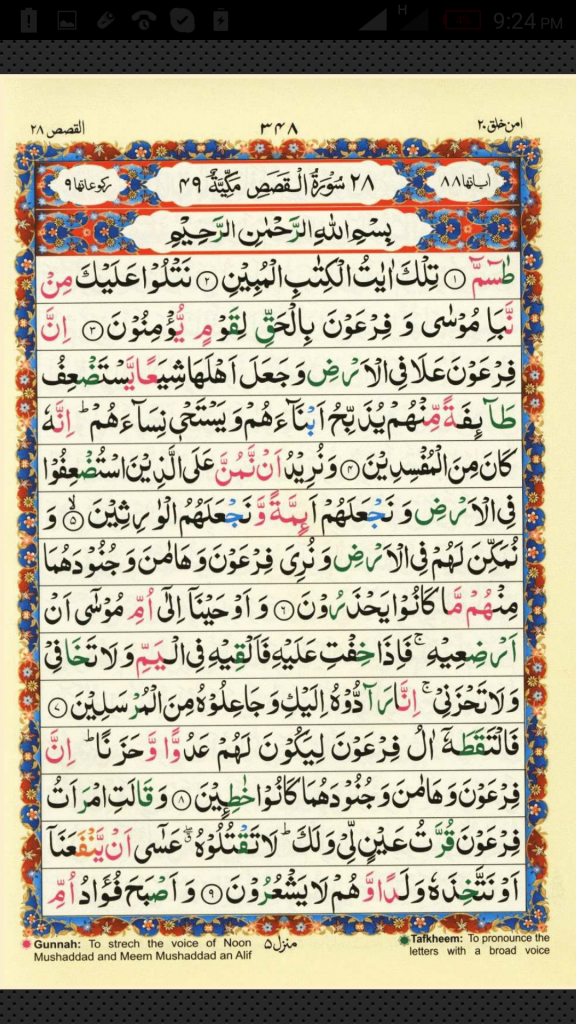 H 4% 9:24 PM
امن خلق ۲۰ ۳۴۸ القصص ۲۸
اٰیاتها ۸۸ ۲۸ سُوْرَةُ الْقَصَصِ مَكِّيَّةٌ ۴۹ ركوعاتها ۹
بِسْمِ اللّٰهِ الرَّحْمٰنِ الرَّحِيْمِ
طٰسٓمّٓ ۱ تِلْكَ اٰيٰتُ الْكِتٰبِ الْمُبِيْنِ ۲ نَتْلُوْا عَلَيْكَ مِنْ
نَّبَاِ مُوْسٰى وَ فِرْعَوْنَ بِالْحَقِّ لِقَوْمٍ يُّؤْمِنُوْنَ ۳ اِنَّ
فِرْعَوْنَ عَلَا فِى الْاَرْضِ وَ جَعَلَ اَهْلَهَا شِيَعًا يَّسْتَضْعِفُ
طَآئِفَةً مِّنْهُمْ يُذَبِّحُ اَبْنَآءَهُمْ وَ يَسْتَحْىٖ نِسَآءَهُمْ ؕ اِنَّهٗ
كَانَ مِنَ الْمُفْسِدِيْنَ ۴ وَ نُرِيْدُ اَنْ نَّمُنَّ عَلَى الَّذِيْنَ اسْتُضْعِفُوْا
فِى الْاَرْضِ وَ نَجْعَلَهُمْ اَئِمَّةً وَّ نَجْعَلَهُمُ الْوٰرِثِيْنَ ۙ ۵ وَ
نُمَكِّنَ لَهُمْ فِى الْاَرْضِ وَ نُرِىَ فِرْعَوْنَ وَ هَامٰنَ وَ جُنُوْدَهُمَا
مِنْهُمْ مَّا كَانُوْا يَحْذَرُوْنَ ۶ وَ اَوْحَيْنَاۤ اِلٰٓى اُمِّ مُوْسٰٓى اَنْ
اَرْضِعِيْهِ ۚ فَاِذَا خِفْتِ عَلَيْهِ فَاَلْقِيْهِ فِى الْيَمِّ وَ لَا تَخَافِىْ
وَ لَا تَحْزَنِىْ ۚ اِنَّا رَآدُّوْهُ اِلَيْكِ وَ جَاعِلُوْهُ مِنَ الْمُرْسَلِيْنَ ۷
فَالْتَقَطَهٗۤ اٰلُ فِرْعَوْنَ لِيَكُوْنَ لَهُمْ عَدُوًّا وَّ حَزَنًا ؕ اِنَّ
فِرْعَوْنَ وَ هَامٰنَ وَ جُنُوْدَهُمَا كَانُوْا خٰطِئِيْنَ ۸ وَ قَالَتِ امْرَاَتُ
فِرْعَوْنَ قُرَّتُ عَيْنٍ لِّىْ وَ لَكَ ؕ لَا تَقْتُلُوْهُ ۖ عَسٰٓى اَنْ يَّنْفَعَنَاۤ
اَوْ نَتَّخِذَهٗ وَلَدًا وَّ هُمْ لَا يَشْعُرُوْنَ ۹ وَ اَصْبَحَ فُؤَادُ اُمِّ
Gunnah: To strech the voice of Noon
Mushaddad and Meem Mushaddad an Alif
منزل ۵
Tafkheem: To pronounce the
letters with a broad voice